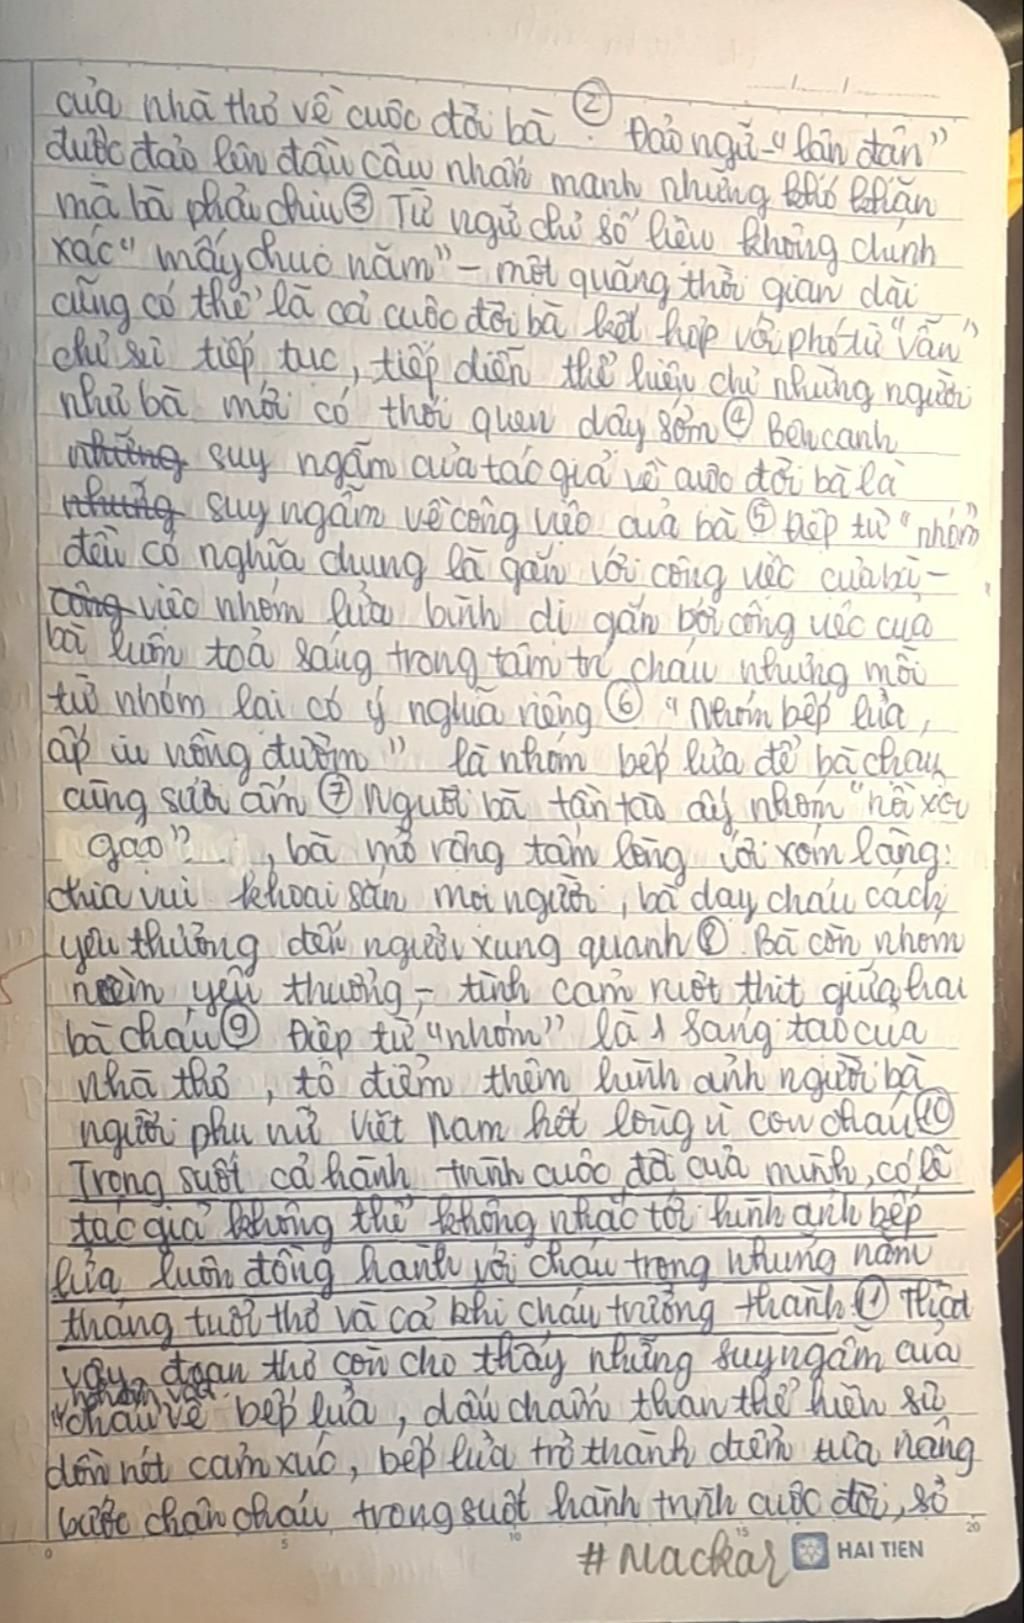 của nhà thơ về cuộc đời bà ②. Đảo ngữ - "lận đận"
được đảo lên đầu câu nhấn mạnh những khó khăn
mà bà phải chịu ③ Từ ngữ chỉ số liệu không chính
xác "mấy chục năm" - một quãng thời gian dài
cũng có thể là cả cuộc đời bà kết hợp với phó từ "vẫn"
chỉ sự tiếp tục, tiếp diễn thể hiện chỉ những người
như bà mới có thói quen dậy sớm ④ Bên cạnh
những suy ngẫm của tác giả về cuộc đời bà là
những suy ngẫm về công việc của bà ⑤ Điệp từ "nhóm"
đều có nghĩa chung là gắn với công việc của bà -
công việc nhóm lửa bình dị gắn bởi công việc của
bà luôn toả sáng trong tâm trí cháu nhưng mỗi
từ nhóm lại có ý nghĩa riêng ⑥ "Nhóm bếp lửa,
ấp iu nồng đượm" là nhóm bếp lửa để bà cháu
cùng sưởi ấm ⑦ Người bà tần tảo ấy nhóm "nồi xôi
gạo", bà mở rộng tấm lòng với xóm làng:
chia vui khoai sắn mọi người, bà dạy cháu cách
yêu thương đến người xung quanh ⑧. Bà còn nhóm
niềm yêu thương - tình cảm ruột thịt giữa hai
bà cháu ⑨ Điệp từ "nhóm" là 1 sáng tạo của
nhà thơ, tô điểm thêm hình ảnh người bà
người phụ nữ Việt Nam hết lòng vì con cháu ⑩
Trong suốt cả hành trình cuộc đời của mình, có lẽ
tác giả không thể không nhắc tới hình ảnh bếp
lửa luôn đồng hành với cháu trong những năm
tháng tuổi thơ và cả khi cháu trưởng thành ⑪ Thật
vậy, đoạn thơ còn cho thấy những suy ngẫm của
nhân vật
"cháu" về bếp lửa, dấu chấm than thể hiện sự
dồn nét cảm xúc, bếp lửa trở thành điểm tựa nâng
bước chân cháu trong suốt hành trình cuộc đời, sở
#Mackar
HAI TIEN
0 5 10 15 20